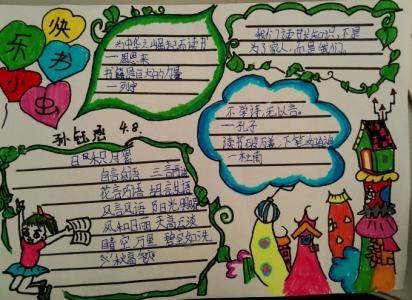 快
乐书
小虫
为中华之崛起而读书
—周恩来
书籍是巨大的力量
—列宁
我们读书长知识，不是
为了家人，而是我们。
不学诗，无以言。
—孔子
读书破万卷，下笔如有神
—杜甫
孙钰 4.8.
日积月累
自言自语
花言巧语 胡言乱语
风言风语
风和日丽 天高云淡
晴空万里 碧空如洗